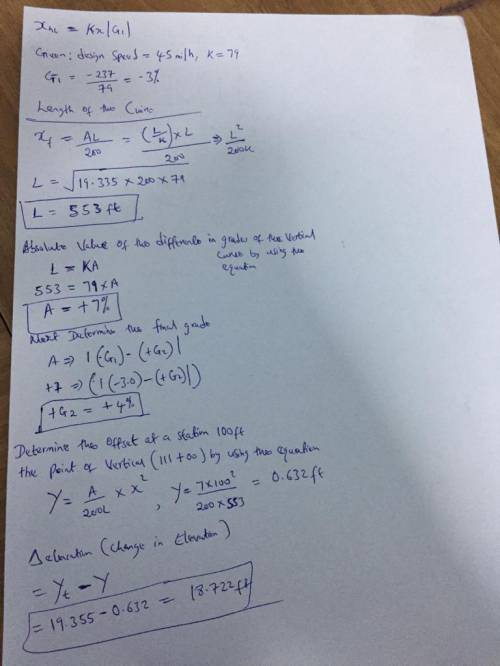 x_hL = Kx|G1|
Given: design speed = 45 mi/h, K = 79
G1 = -237/79 = -3%
Length of the Curve
x_f = AL/200 = (L/K)×L/200 ⇒ L²/200K
L = √19.335×200×79
L = 553 ft
Absolute Value of the difference in grades of the Vertical
Curves by using the
equation
L = KA
553 = 79×A
A = +7%
Next Determine the final grade
A ⇒ |(-G1) - (+G2)|
+7 ⇒ (|(-3.0) - (+G2)|)
+G2 = +4%
Determine the offset at a station 100ft
the Point of Vertical (111+00) by using the equation
Y = A/200L × x² , Y = 7×100²/200×553 = 0.632 ft
Δelevation (change in Elevation)
= Y_t - Y
= 19.355 - 0.632 = 18.722 ft